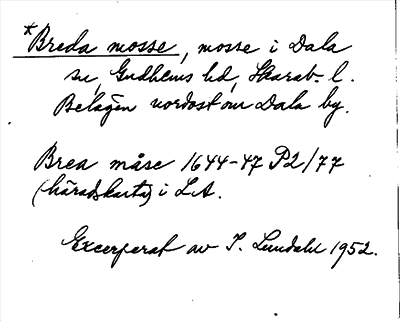 *Breda mosse, mosse i Dala
sn, Gudhems hd, Skarab. l.
Belägen nordost om Dala by.
Brea måse 1644-47 P2/77
(häradskarta) i L.A.
Excerperat av I. Lundahl 1952.